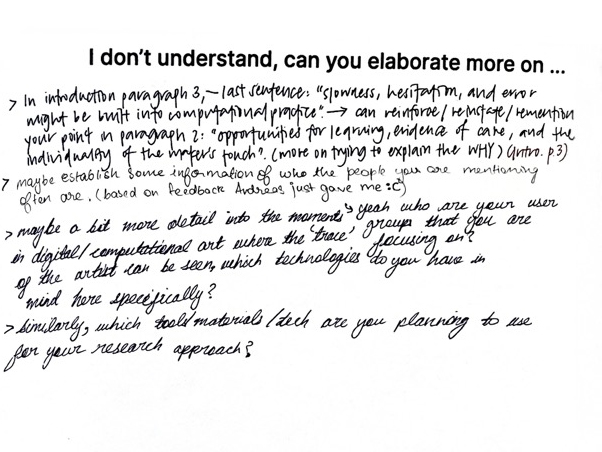 I don't understand, can you elaborate more on ...
> In introduction paragraph 3, — last sentence: "slowness, hesitation, and error
might be built into computational practice". → can reinforce / reinstate / remention
your point in paragraph 2: "opportunities for learning, evidence of care, and the
individuality of the maker's touch". (more on trying to explain the WHY) (Intro. p3)
> maybe establish some information of who the people you are mentioning
often are. (based on feedback Andreas just gave me :C)
↳ yeah who are your user
groups that you are
focusing on?
> maybe a bit more detail into the moments
in digital / computational art where the 'trace'
of the artist can be seen, which technologies do you have in
mind here specifically?
> similarly, which tools / materials / tech are you planning to use
for your research approach?